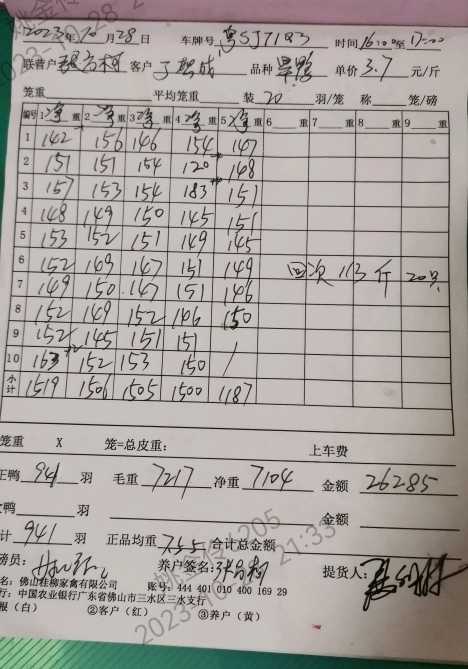 2023年10月28日 车牌号 粤SJ71Q3 时间16:00至17:00
联营户 客户 品种 单价3.7元/斤
笼重 平均笼重 装20羽/笼 称 笼/磅
编号 1净重 2净重 3净重 4净重 5净重 6重 7重 8重 9重
1 142 156 146 154 147
2 151 151 154 120 148
3 157 153 154 183 151
4 148 149 150 145 151
5 153 152 151 149 145
6 152 149 147 151 149 回次 113斤 20只
7 149 150 147 151 146
8 152 149 152 146 150
9 152 145 151 151 /
10 163 152 153 150
小计 1519 1506 1505 1500 1187
笼重 X 笼=总皮重: 上车费
正鸭941羽 毛重7217 净重7104 金额26285
鸭 羽 金额
计941羽 正品均重7.55 合计总金额
磅员: 养户签名: 提货人:
名:佛山桂柳家禽有限公司 账号:444 401 010 400 169 29
行:中国农业银行广东省佛山市三水区三水支行
根(白) ②客户(红) ③养户(黄)
2023-10-28 21:33